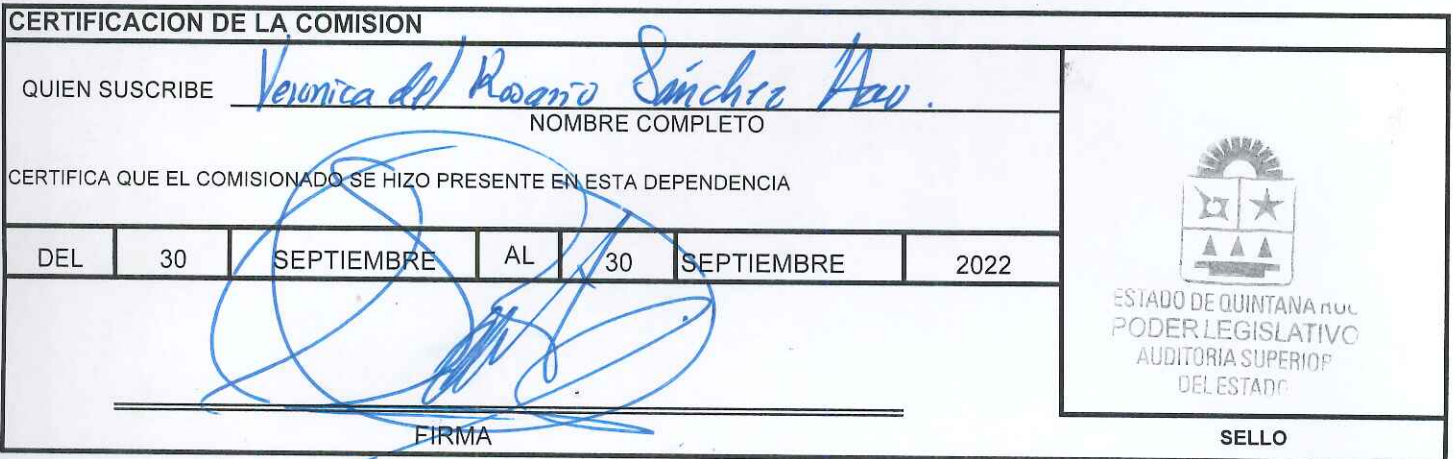 CERTIFICACION DE LA COMISION
QUIEN SUSCRIBE Veronica del Rosario Sánchez
NOMBRE COMPLETO
CERTIFICA QUE EL COMISIONADO SE HIZO PRESENTE EN ESTA DEPENDENCIA
DEL 30 SEPTIEMBRE AL 30 SEPTIEMBRE 2022
ESTADO DE QUINTANA ROO
PODER LEGISLATIVO
AUDITORIA SUPERIOR
DEL ESTADO
FIRMA
SELLO